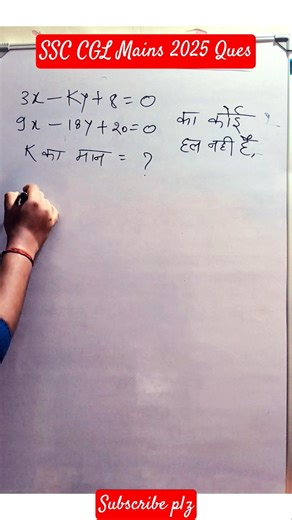 SSC CGL Mains 2025 Ques
3x - Ky + 8 = 0
9x - 18y + 20 = 0
का कोई
हल नही है,
K का मान = ?
Subscribe plz